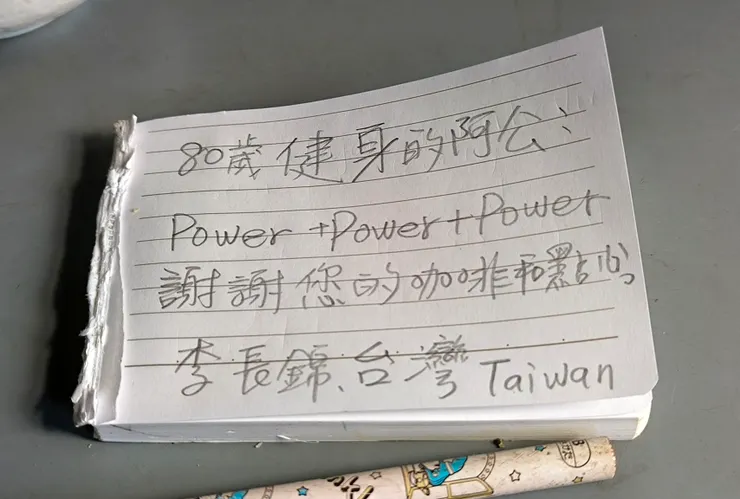 80歲健身的阿公、
Power+Power+Power
謝謝您的咖啡和點心
李長錦、台灣 Taiwan